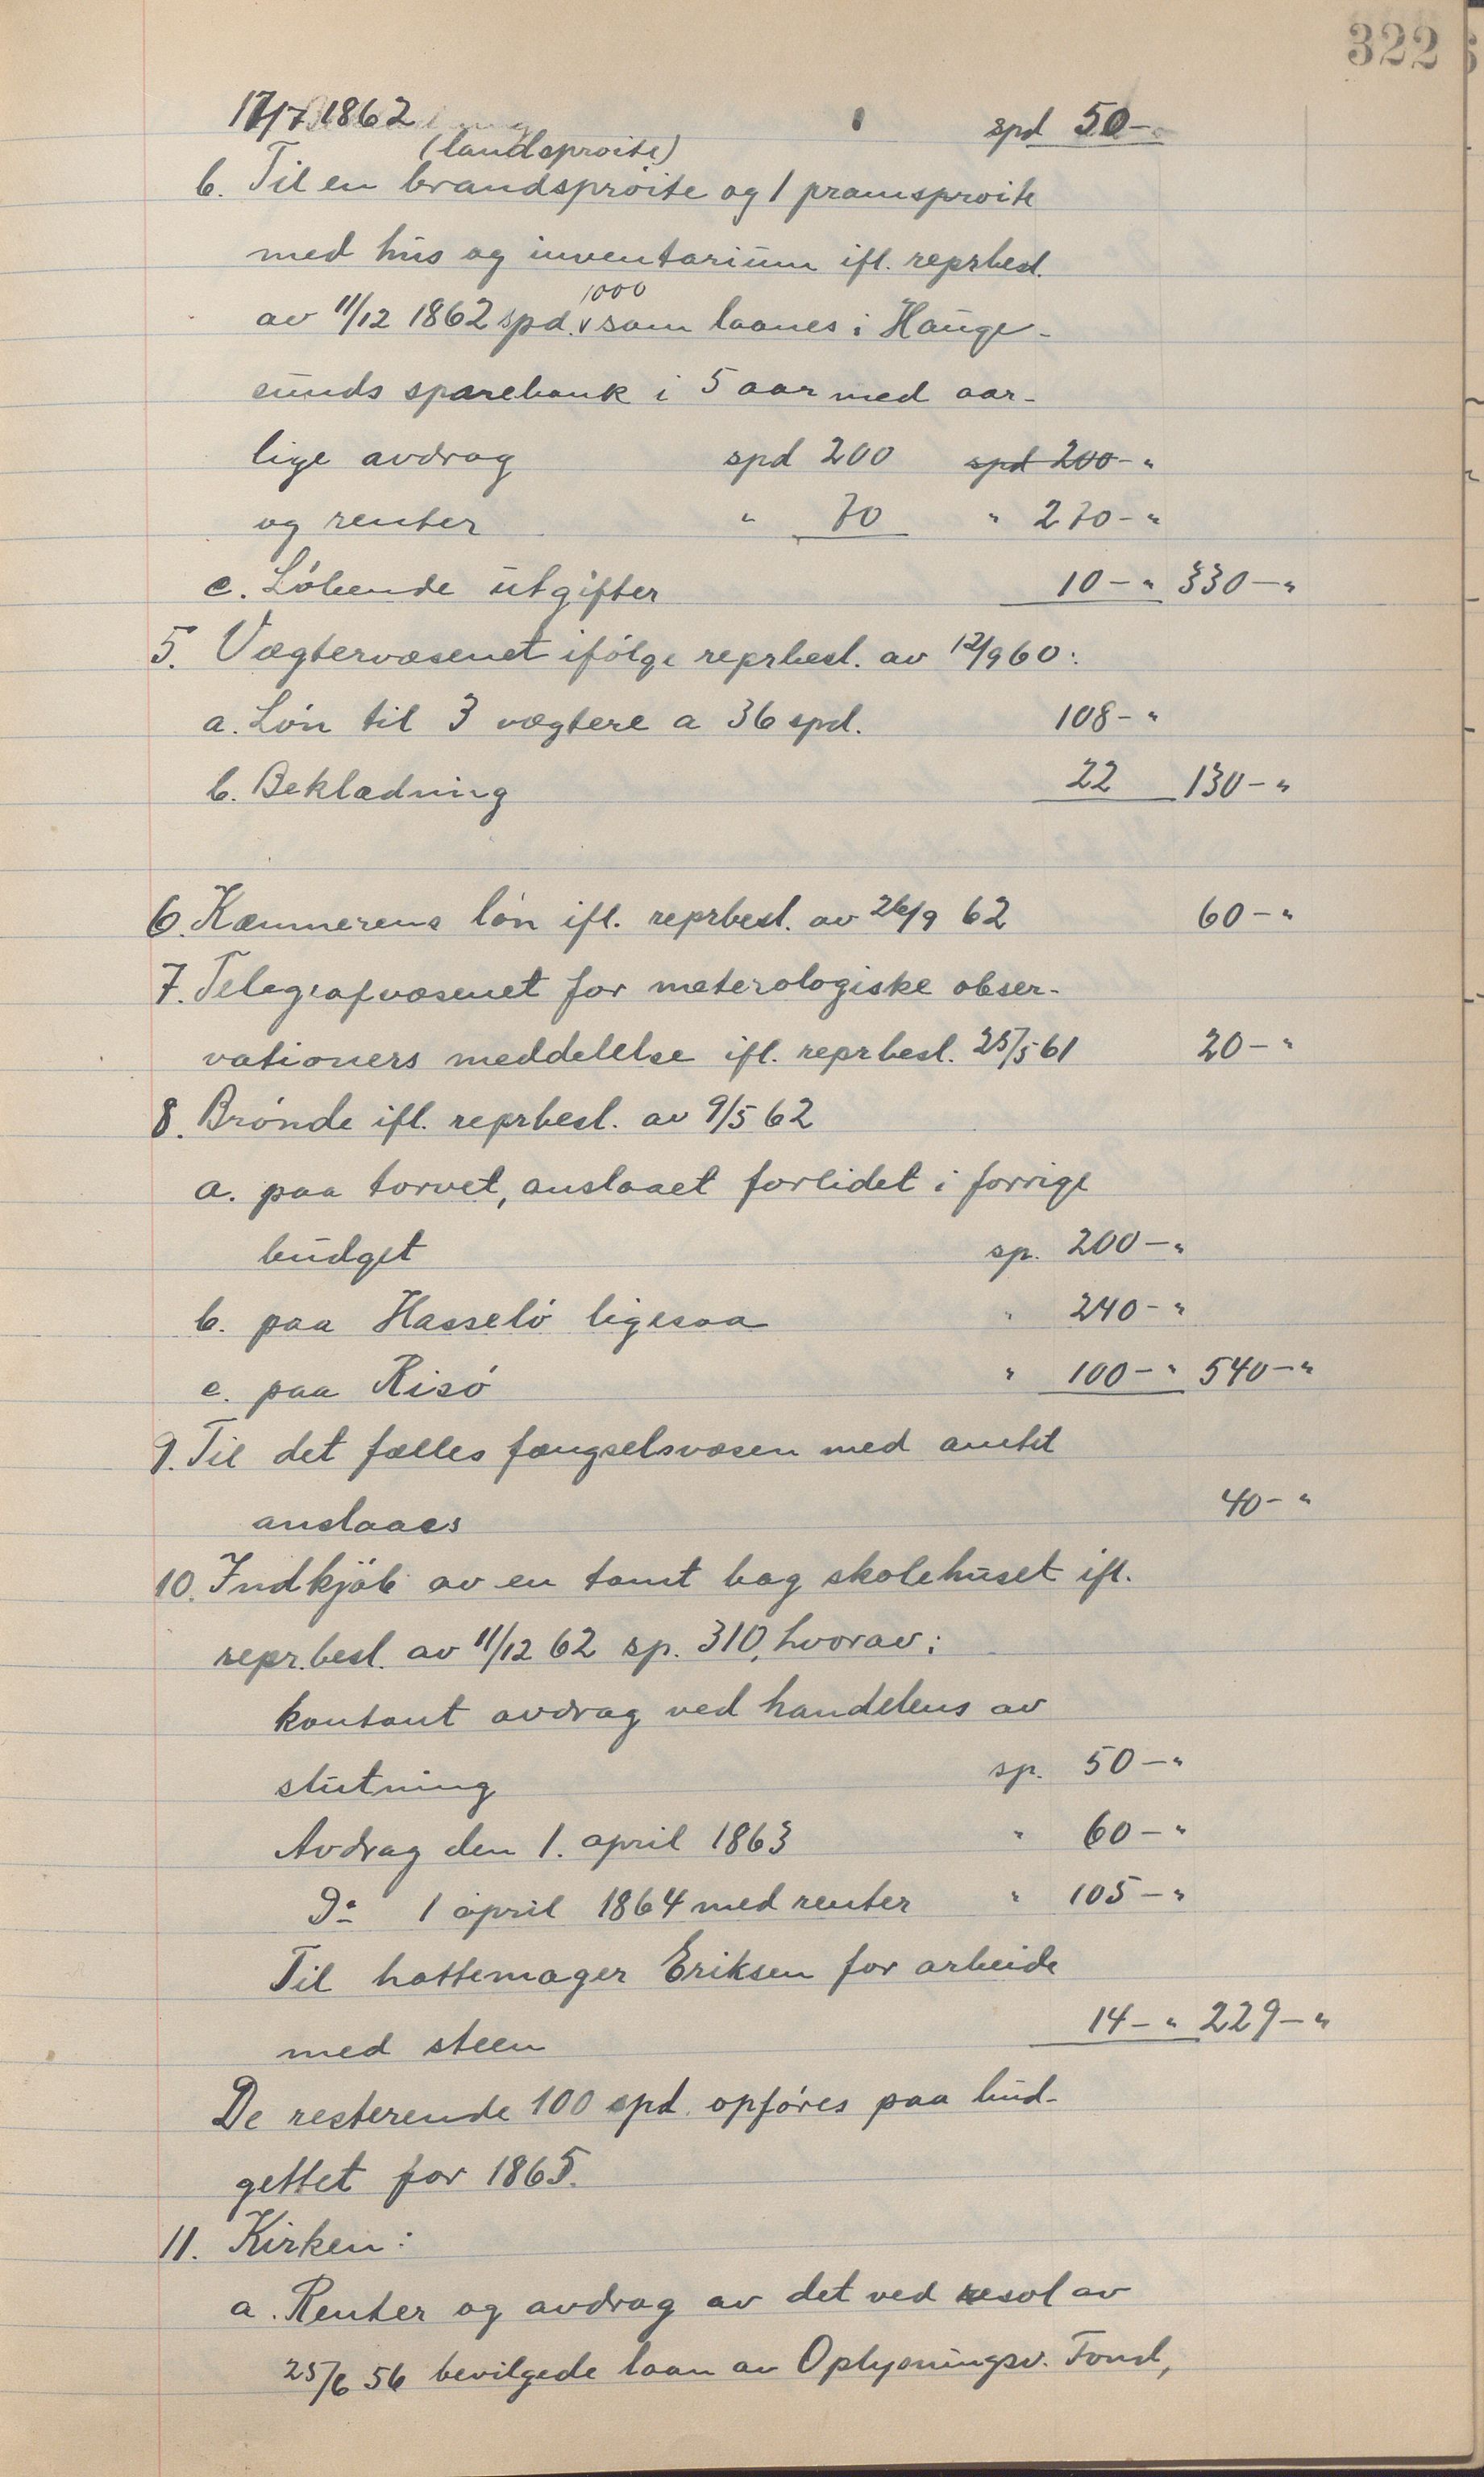 322
17/7 1862 spd 50-"
(landsprøite)
b. Til en brandsprøite og 1 pramsprøite
med hus og inventarium ifl. reprbesl.
av 11/12 1862 spd. 1000 som laanes i Hauge-
sunds sparebank i 5 aar med aar-
lige avdrag spd 200 spd 200-"
og renter " 70 " 270-"
c. Løbende utgifter 10-" 330-"
5. Vægtervæsenet ifølge reprbesl. av 12/9 60:
a. Løn til 3 vægtere a 36 spd. 108-"
b. Beklædning 22 130-"
6. Kæmnerens løn ifl. reprbesl. av 26/9 62 60-"
7. Telegrafvæsenet for meterologiske obser-
vationers meddelelse ifl. reprbesl. 25/5 61 20-"
8. Brønde ifl. reprbesl. av 9/5 62
a. paa torvet, anslaaet forlidet i forrige
budget sp. 200-"
b. paa Hasselø ligesaa " 240-"
c. paa Risø " 100-" 540-"
9. Til det fælles fængselsvæsen med amtet
anslaaes 40-"
10. Indkjøb av en tomt bag skolehuset ifl.
repr.besl. av 11/12 62 sp. 310, hvorav:
kontant avdrag ved handelens av
slutning sp. 50-"
Avdrag den 1. april 1863 " 60-"
Do 1 april 1864 med renter " 105-"
Til hattemager Eriksen for arbeide
med steen 14-" 229-"
De resterende 100 spd. opføres paa bud-
gettet for 1865.
11. Kirken:
a. Renter og avdrag av det ved resol av
25/6 56 bevilgede laan av Oplysningsv. Fond,